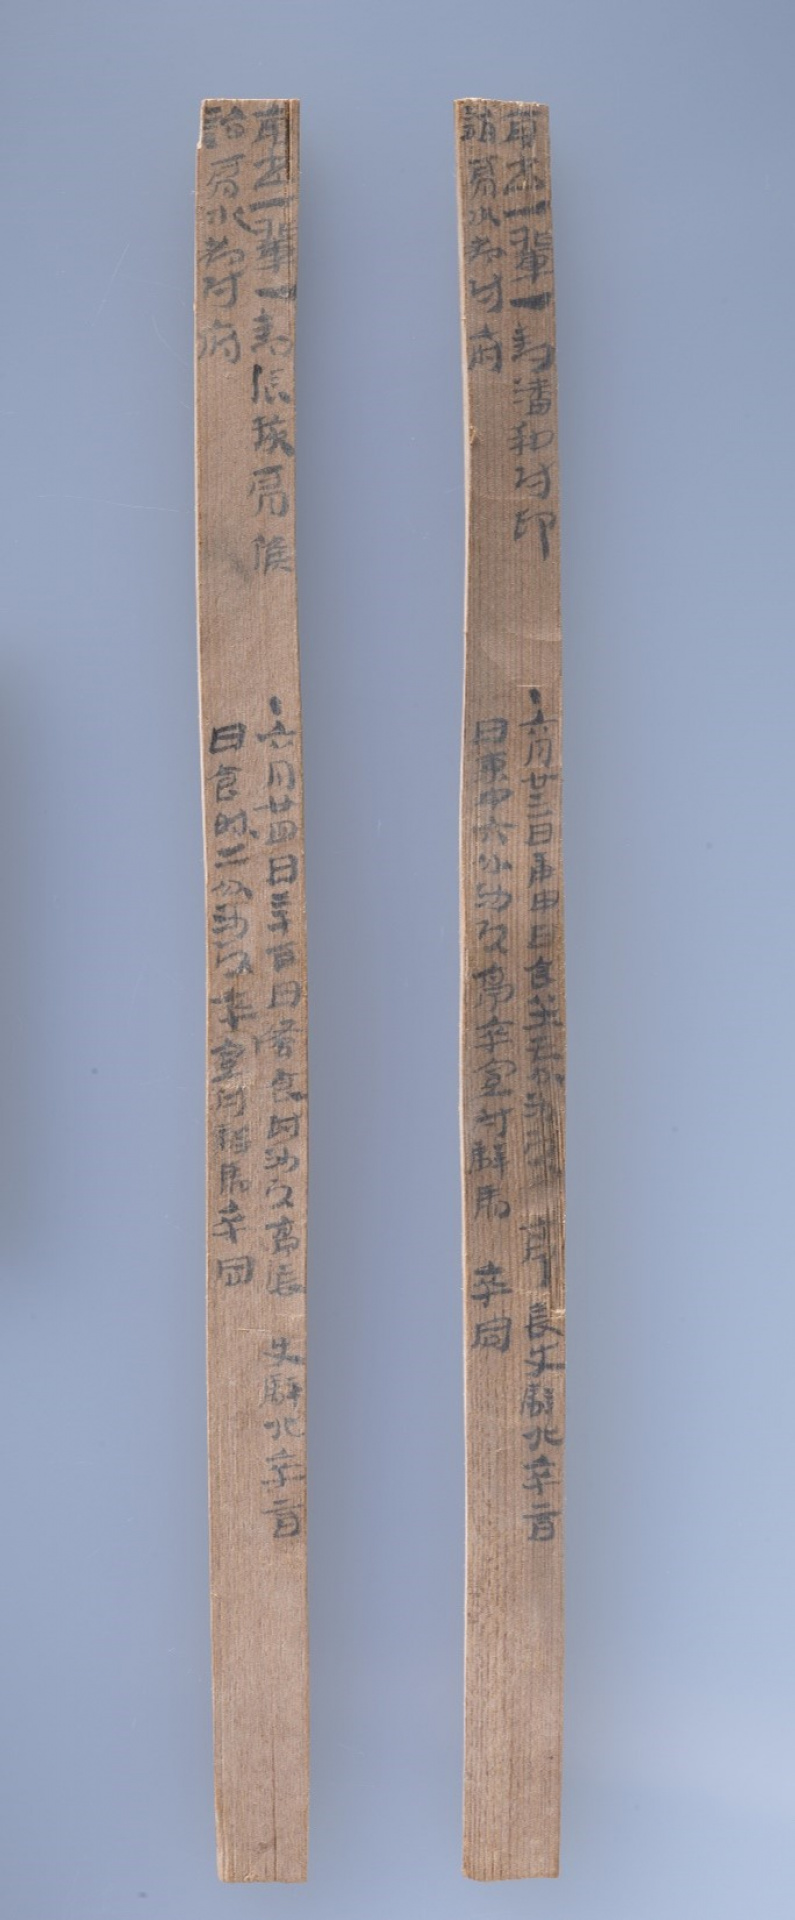 南書一輩一封潘和尉印
詣肩水都尉府
·六月廿三日庚申日食坐五分沙頭亭長受騂北卒音
日東中六分沙頭亭卒宣付騂馬卒同
南書一輩一封張掖肩候
詣肩水都尉府
·六月廿四日辛酉日蚤食時沙頭亭長受騂北卒音
日食時二分沙頭卒宣付騂馬卒同